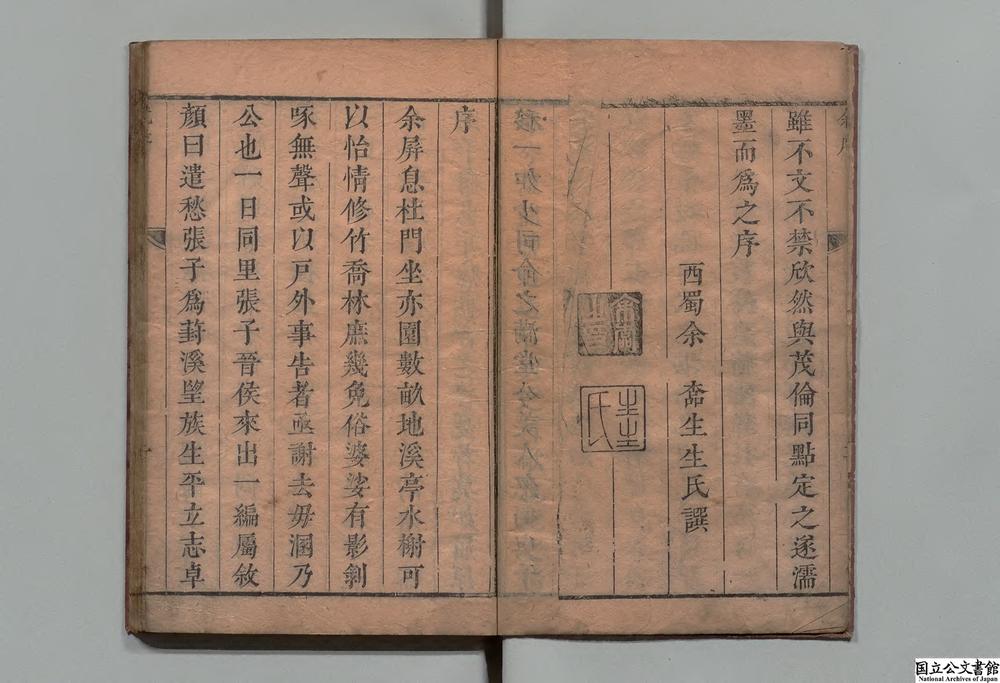 雖不文不禁欣然與茂倫同點定之遂濡
墨而爲之序
西蜀余 生生氏譔
生生氏
序
余屏息杜門坐亦園數畝地溪亭水榭可
以怡情修竹喬林庶幾免俗婆娑有影剝
啄無聲或以戶外事告者亟謝去毋溷乃
公也一日同里張子晉侯來出一編屬敘
顏曰遣愁張子爲葑溪望族生平立志卓
国立公文書館
National Archives of Japan